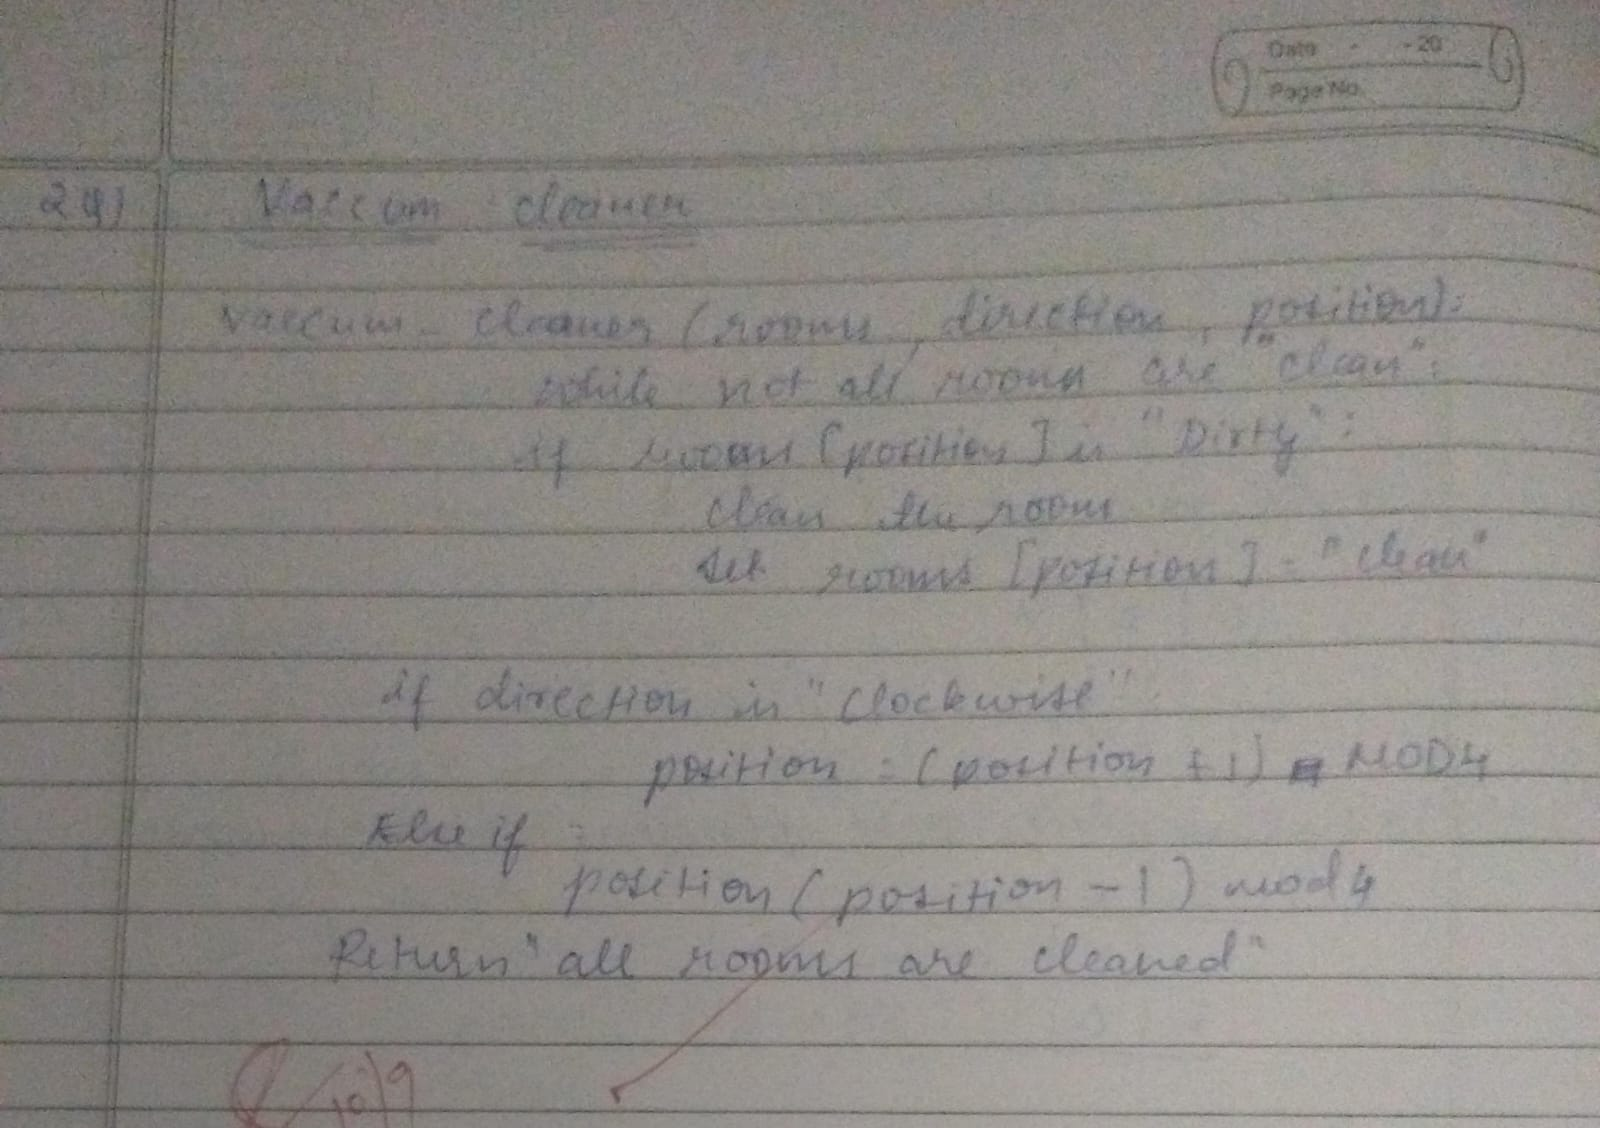 Date - -20
Page No.
24)
Vaccum cleaner
vaccum- cleaner (rooms, direction, position):
while not all rooms are "clean":
if rooms [position] is "Dirty":
clean the room
set rooms [position] = "clean"
if direction is "clockwise":
position = (position + 1) MOD4
Else if :
position (position - 1) mod4
Return "all rooms are cleaned"
10/9